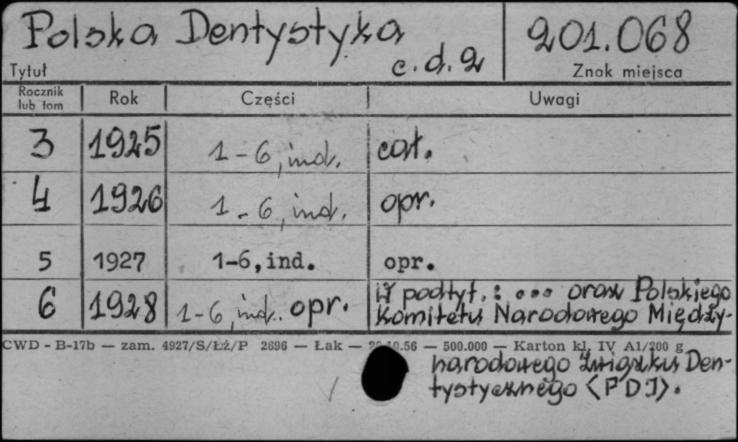 Polska Dentystyka 201.068
Tytuł c.d.2 Znak miejsca
Rocznik lub tom Rok Części Uwagi
3 1925 1-6, ind. cał.
4 1926 1-6, ind. opr.
5 1927 1-6, ind. opr.
6 1928 1-6, ind. opr. W podtyt.: ... oraz Polskiego
Komitetu Narodowego Między-
CWD - B-17b — zam. 4927/S/ŁŻ/P 2696 — Łak — 10.56 — 500.000 — Karton kl. IV A1/200 g
narodowego Związku Den-
tystycznego (PDI).